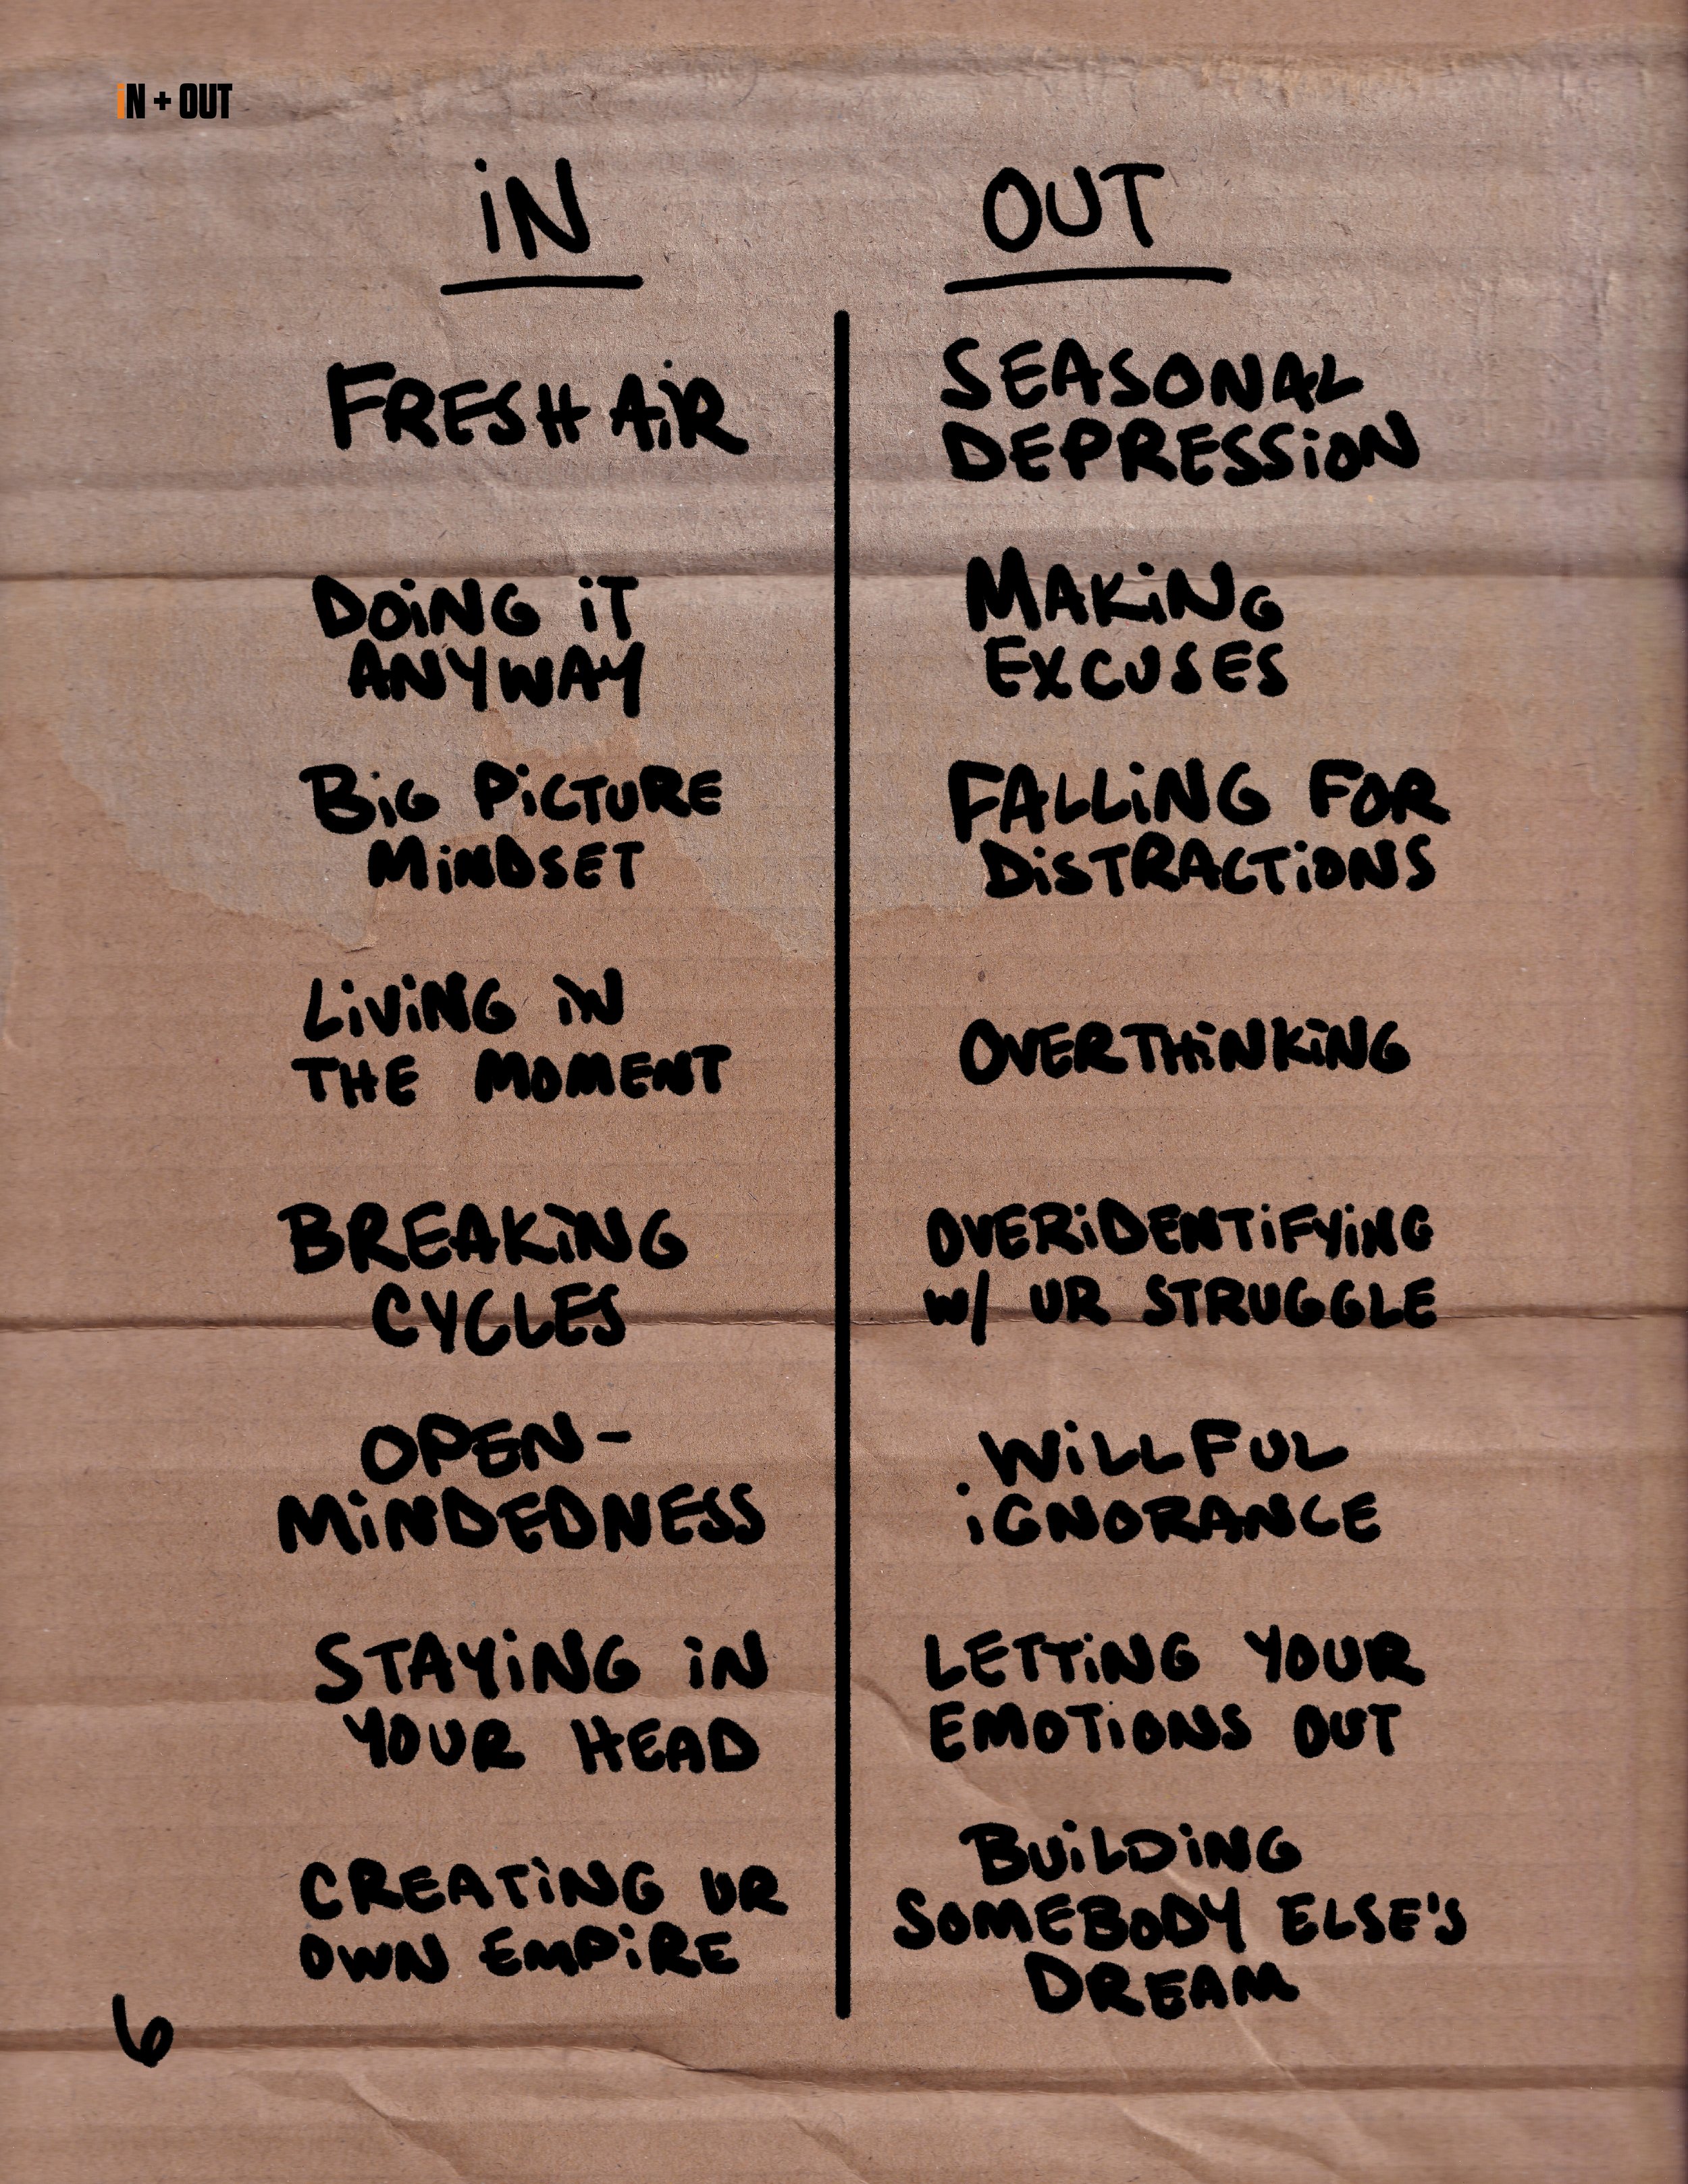 iN + OUT
iN
OUT
FRESH AiR
SEASONAL
DEPRESSiON
DOiNG iT
ANYWAY
MAKiNG
EXCUSES
BiG PiCTURE
MiNDSET
FALLiNG FOR
DiSTRACTiONS
LiViNG iN
THE MOMENT
OVERTHiNKiNG
BREAKiNG
CYCLES
OVERiDENTiFYiNG
W/ UR STRUGGLE
OPEN-
MiNDEDNESS
WiLLFUL
iGNORANCE
STAYiNG iN
YOUR HEAD
LETTiNG YOUR
EMOTiONS OUT
CREATiNG UR
OWN EMPiRE
BUiLDiNG
SOMEBODY ELSE'S
DREAM
6